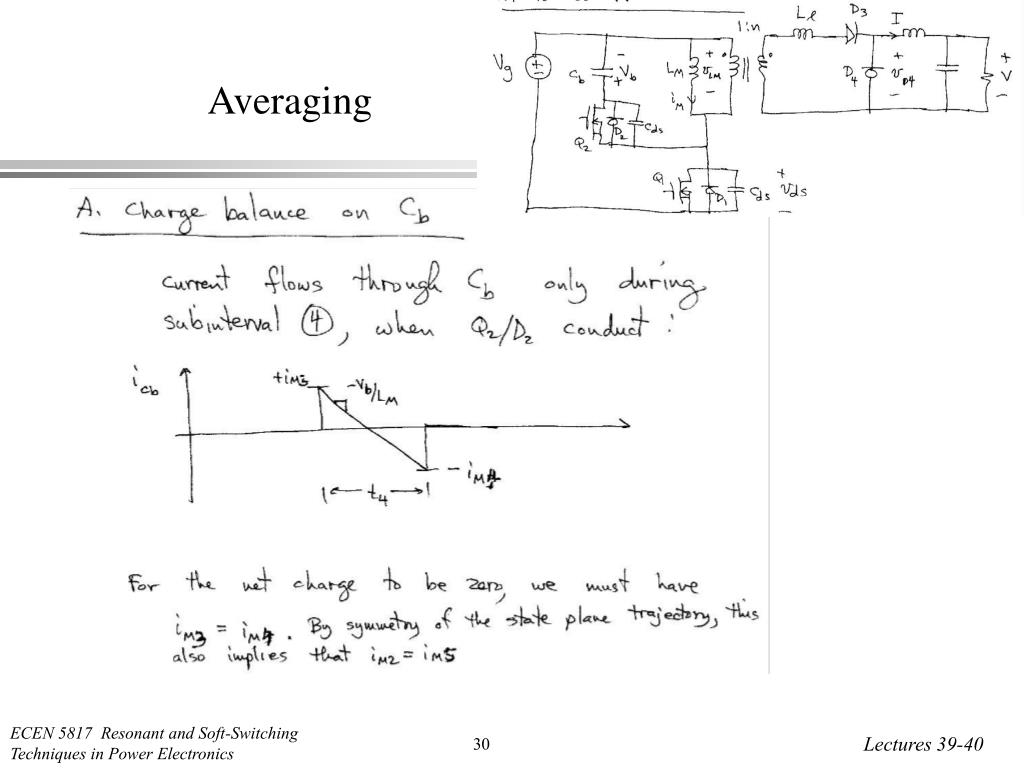 Averaging
1:n
Lℓ
D3
I
Vg
+
−
Cb
−
Vb
+
LM
+
vLM
−
iM
D4
+
vD4
−
+
V
−
Q2
D2
Cds
Q1
D1
Cds
+
Vds
−
A. Charge balance on Cb
current flows through Cb only during
subinterval ④, when Q2/D2 conduct :
icb
+iM3
−Vb/LM
− iM4
t4
For the net charge to be zero, we must have
iM3 = iM4 . By symmetry of the state plane trajectory, this
also implies that iM2 = iM5
ECEN 5817 Resonant and Soft-Switching
Techniques in Power Electronics
30
Lectures 39-40